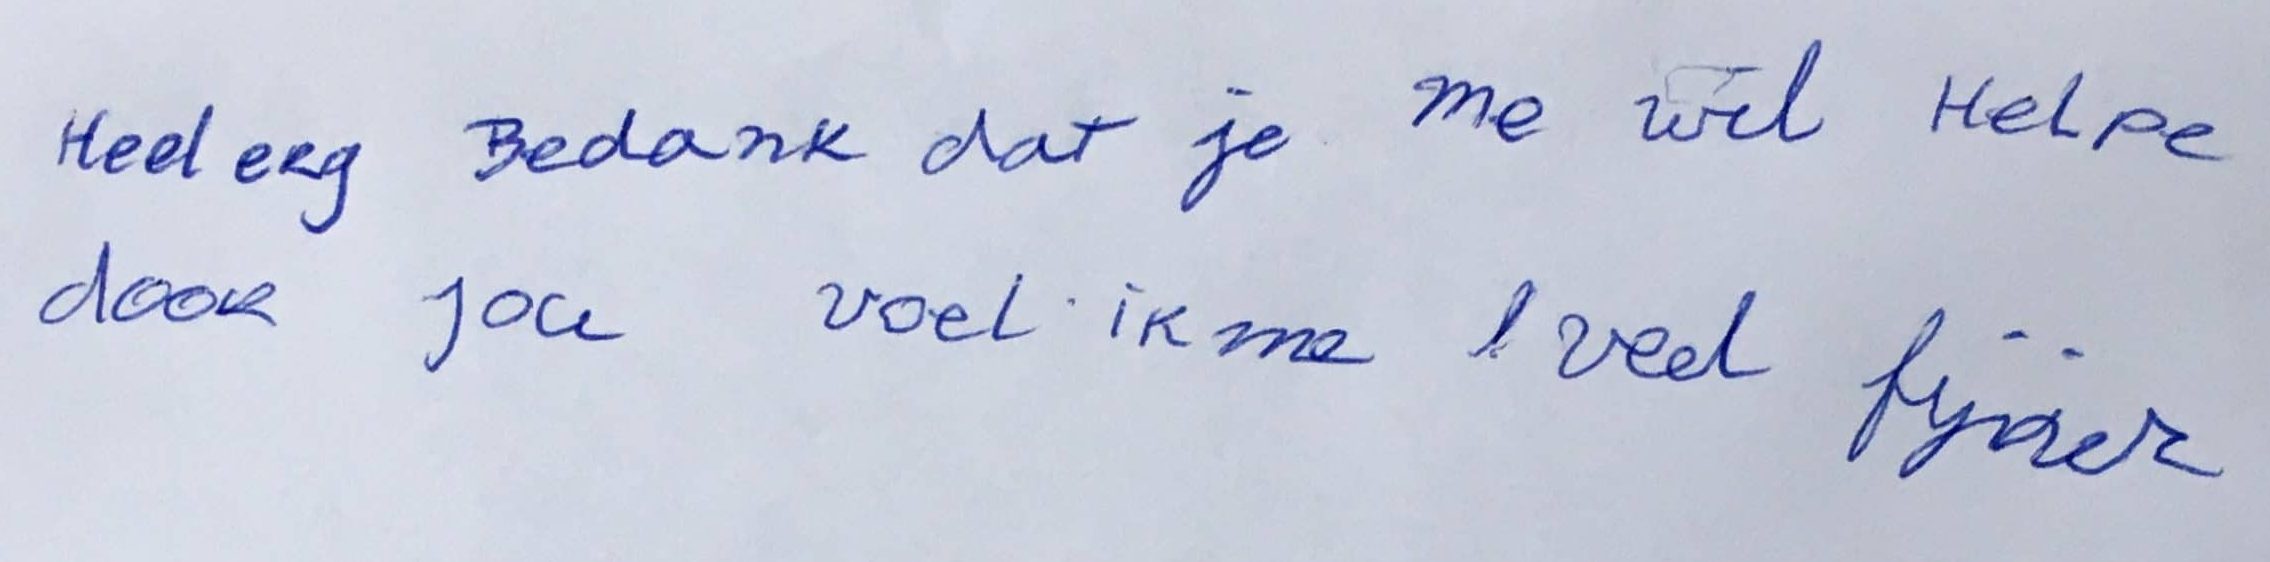 Heel erg Bedank dat je me wil Helpe
door jou voel ik me veel fijner